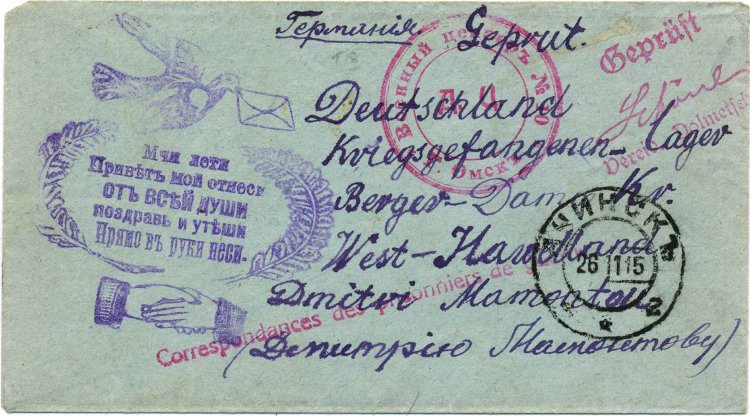 Германія Geprüt.
Deutschland
Kriegsgefangenen-Lager
Berger-Dam Kr.
West-Havelland
Dmitri Mamontow
(Дмитрію Мамонтову)
Мчи лети
Привѣтъ мой отнеси
ОТЪ ВСѢЙ ДУШИ
поздравь и утѣши
Прямо въ руки неси.
Военный цензоръ №
Д. А.
Омскъ
Geprüft
Vereid. Dolmetsch
Correspondances des prisonniers de
АЧИНСКЪ
26 11 15
2